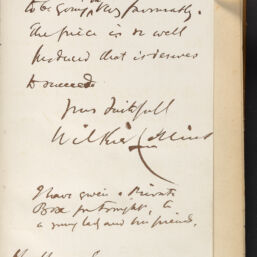 to be going on very favourably.
The piece is so well
produced that it deserves
to succeed
yours faithfully
Wilkie Collins
I have given a Private
Box for tonight, to
a young lad and his friends.